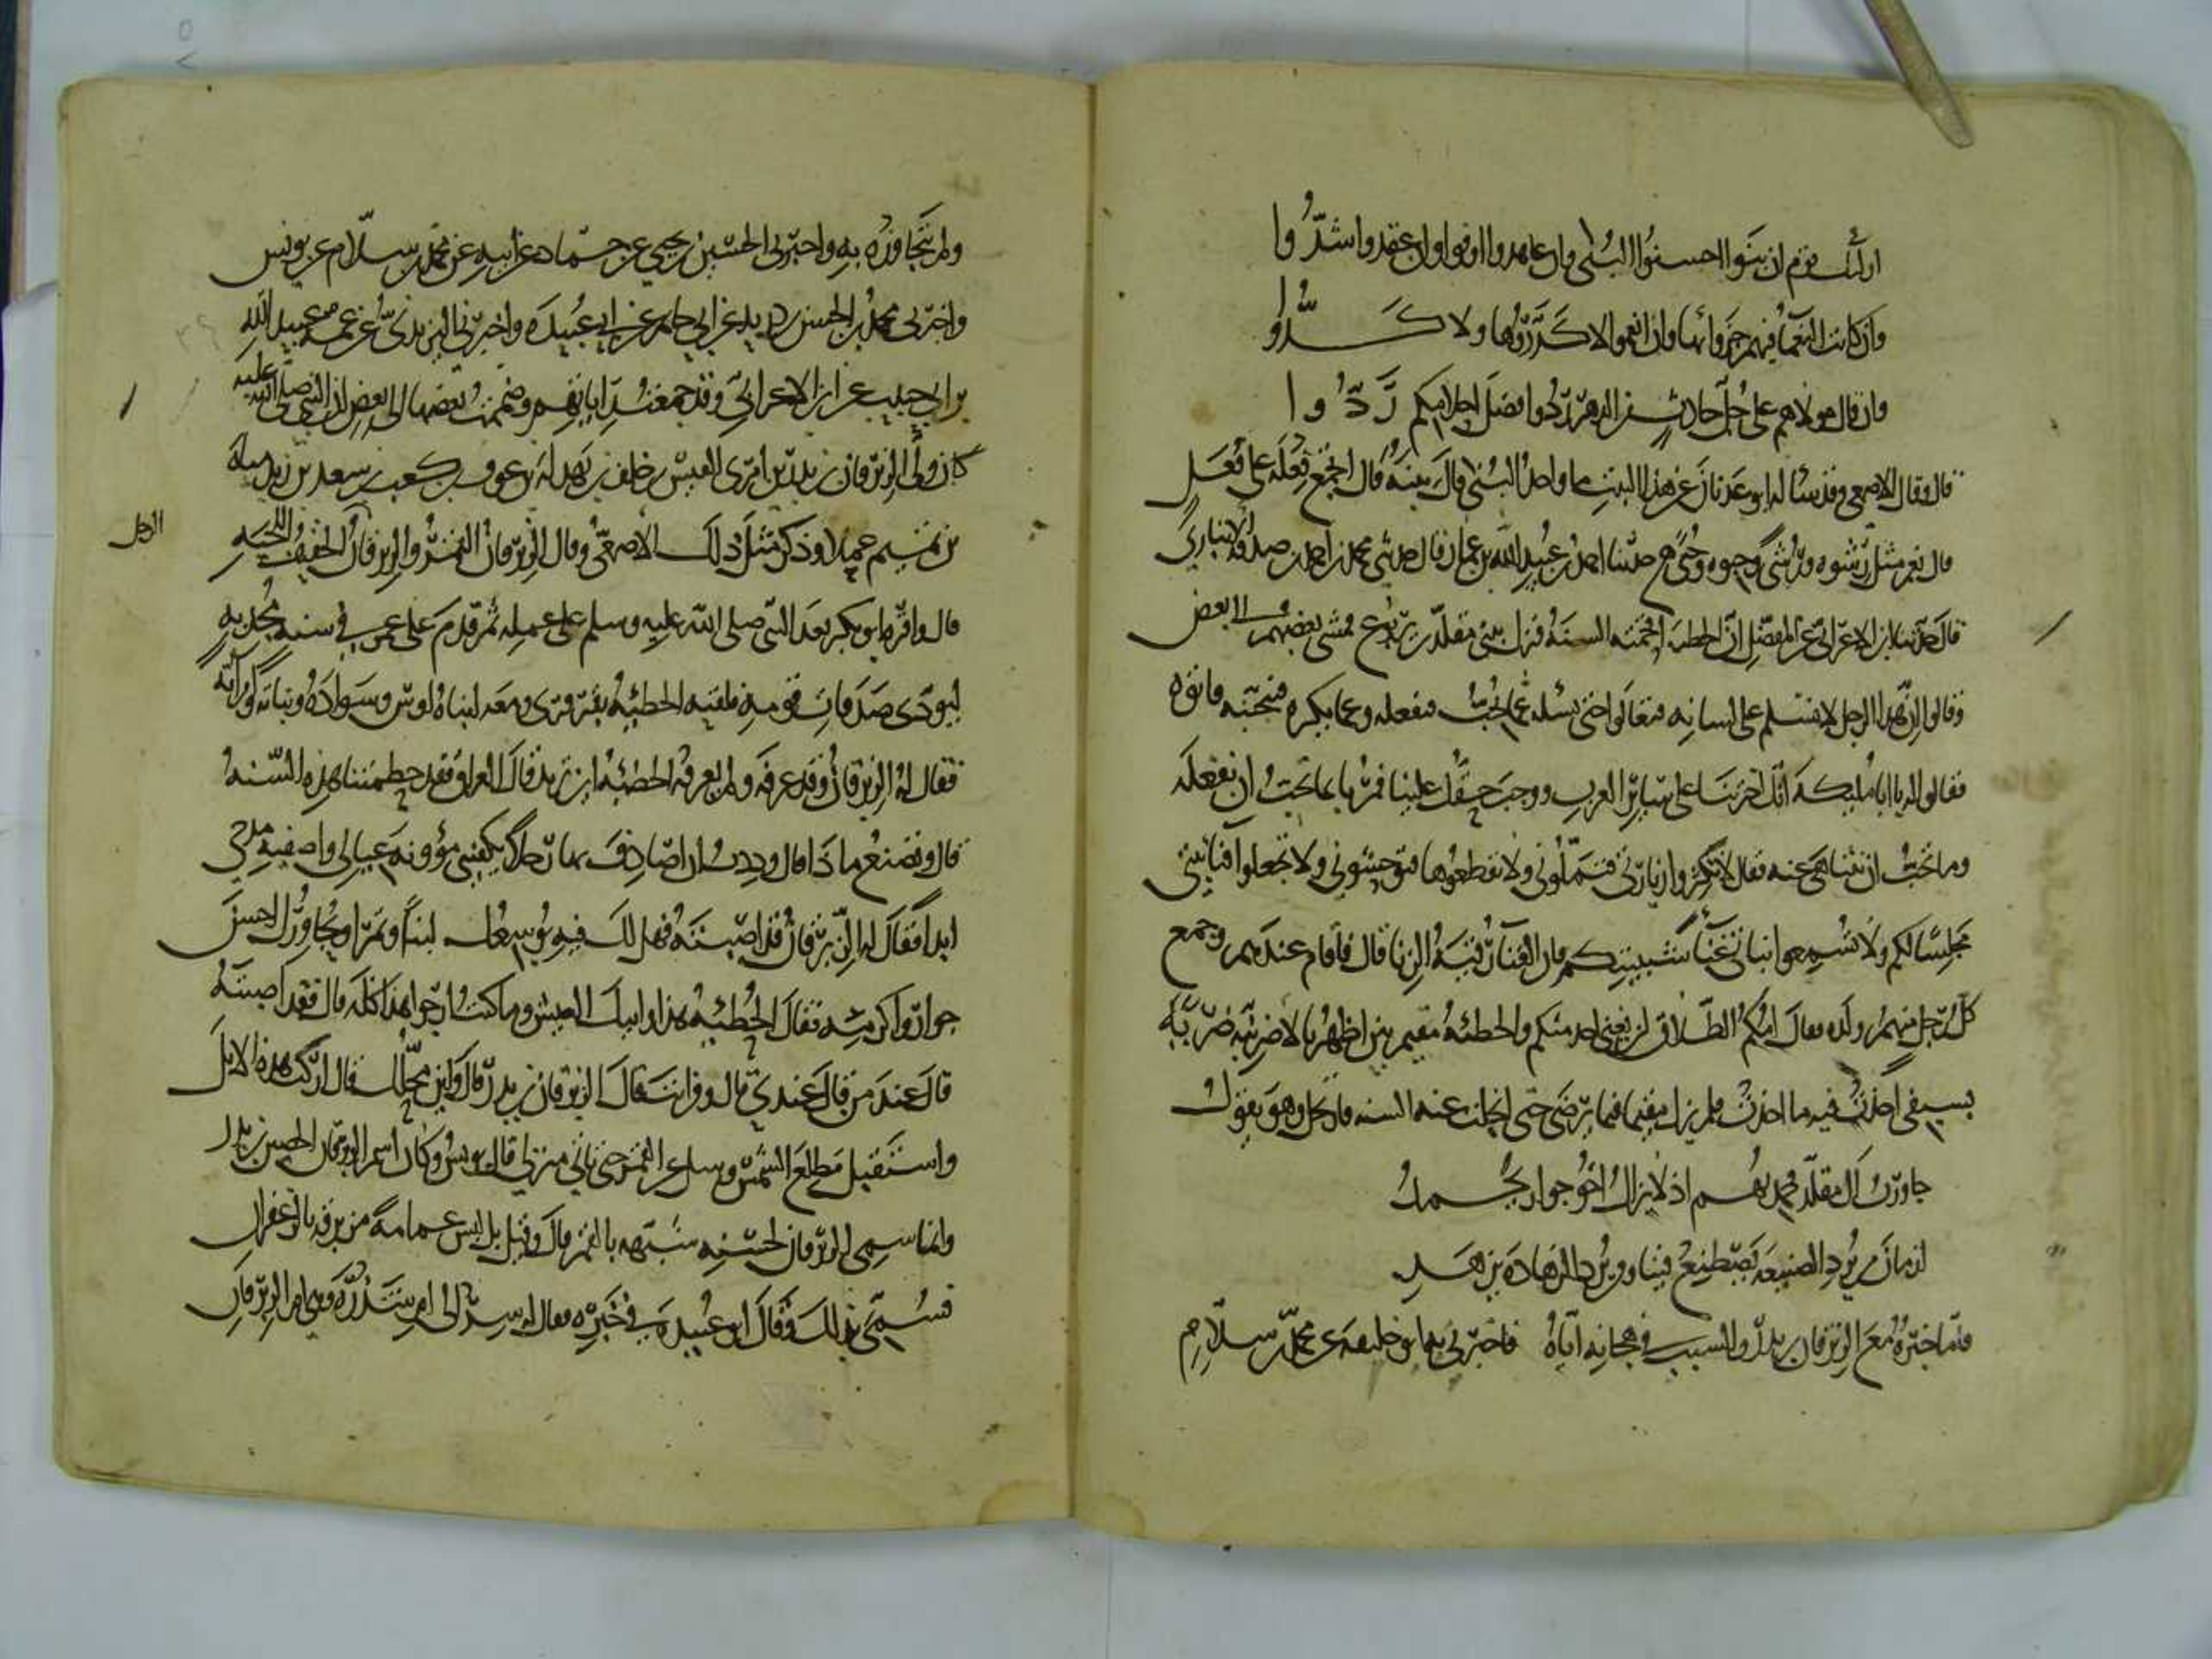 اولئك قوم ان بنوا احسنوا البنى وان عاهدوا اوفوا وان عقدوا شدوا
وان كانت النعما فيهم جزوا بها وان انعموا لا كدروها ولا كدوا
وان قال مولاهم على جل حادث من الدهر ردوا فضل احلامكم ردوا
قال وقال الاصمعي وقد سئاله ابو عدنان عن هذا البيت ما واحد البنى قال بنية قال اتجمع فعلة على فعل
قال نعم مثل رشوه ورشى وحبوه وحبى حدثنا احمد بن عبيد الله بن عمار قال حدثني محمد بن احمد بن صدقة الانباري
قال حدثنا ابن الاعرابي عن المفضل ان الحطيئة اقحمته السنة فنزل ببني مقلد بن يربوع فمشى بعضهم الى بعض
وقالوا ان هذا الرجل لا نسلم على لسانه فتعالوا حتى نسئله عما يحب فنفعله وعما يكره فنجتنبه فاتوه
فقالوا له يا ابا مليكة انك اخترتنا على سائر العرب ووجب حقك علينا فمرنا بما تحب ان نفعله
وما تحب ان نتناهى عنه فقال لا تكثروا زيارتى فتملونى ولا تقطعوها فتوحشونى ولا تجعلوا فنا بيتى
مجلسا لكم ولا تسمعوا بناتى غناء شبيبتكم فان الغناء رقية الزنا قال فاقام عندهم وجمع
كل رجل منهم ولده وقال امكم الطلاق لئن تغنى احد منكم والحطئة مقيم بين اظهرنا لاضربنه ضربة
بسيفى اخذت فيه ما اخذت فلم يزل مقيما فيما يرضى حتى انجلت عنه السنة فارتحل وهو يقول
جاورت ال مقلد فحمدتهم اذ لا يزال اخو جوار يحمد
ازمان من يرد الصنيعة يصطنع فينا ومن يرد الزهادة يزهد
فاما خبره مع الزبرقان بن بدر والسبب في هجائه اياه فاخبرني به ابو خليفة عن محمد بن سلام
ولم يتجاوزه به واخبرني الحسين بن يحيى عن حماد عن ابيه عن محمد بن سلام عن يونس
واخبرني محمد بن الحسن بن دريد عن ابي حاتم عن ابي عبيدة واخبرني اليزيدي عن عمه عبيد الله
بن ابي حبيب عن ابن الاعرابي وقد جمعت رواياتهم وضممت بعضها الى بعض ان النبي صلى الله عليه
كان ولى الزبرقان بن بدر بن امرى القيس بن خلف بن بهدلة بن عوف بن كعب بن سعد بن زيد مناة
بن تميم عملا وذكر مثل ذلك الاصمعي وقال الزبرقان القمر والزبرقان الخفيف اللحية
الرجل
قال واقره ابو بكر بعد النبي صلى الله عليه وسلم على عمله ثم قدم على عمر في سنة مجدبة
ليودى صدقات قومه فلقيه الحطيئة بقرقرى ومعه ابناه اوس وسوادة وبناته وامراته
فقال له الزبرقان وقد عرفه ولم يعرفه الحطيئة اين تريد قال العراق فقد حطمتنا هذه السنة
قال وتصنع ماذا قال وددت ان اصادف بها رجلا يكفينى مؤونة عيالى واصفيه مدحى
ابدا فقال له الزبرقان قد اصبته فهل لك فيه يوسعك لبنا وتمرا ويجاورك احسن
جوار واكرمه فقال الحطيئة هذا وابيك العيش وما كنت ارجوا هذا كله قال فقد اصبته
قال عند من قال عندي قال ومن انت قال الزبرقان بن بدر قال واين محلك قال اركب هذه الابل
واستقبل مطلع الشمس وسل عن القمر حتى تاتى منزلى قال يونس وكان اسم الزبرقان الحصين بن بدر
وانما سمي الزبرقان لحسنه شبه بالقمر قال وقيل بل لبس عمامة مزبرقة بالزعفران
فسمى بذلك وقال ابو عبيدة في خبره فقال له سر الى ام شذرة وهي ام الزبرقان